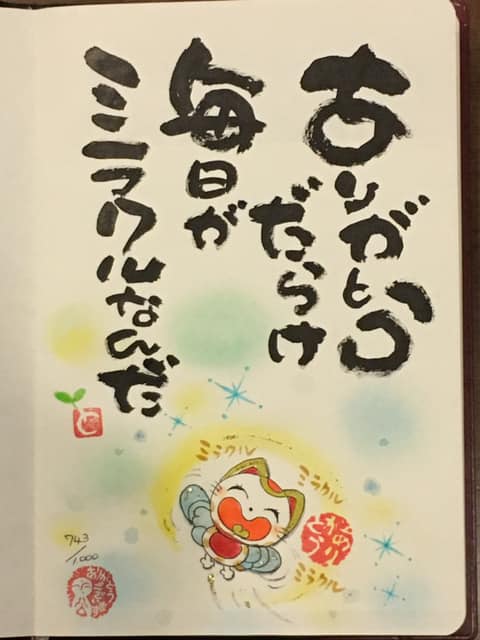 ありがとう
だらけ
毎日が
ミラクルなんだ
と
ミラクル
ミラクル
ありがとう
ミラクル
743
/1000